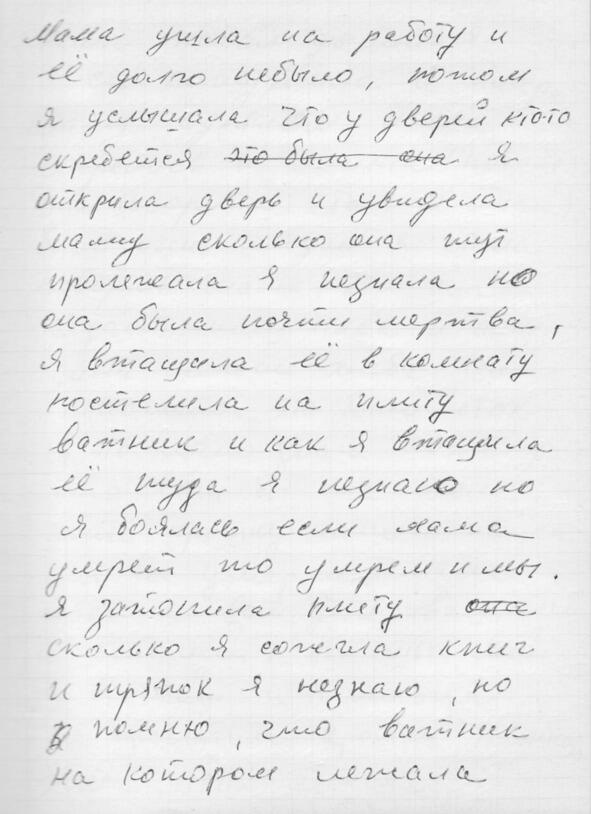 Мама ушла на работу и
её долго небыло, потом
я услышала что у дверей ктото
скребется это была она я
открыла дверь и увидела
маму сколько она тут
пролежала я незнала но
она была почти мертва,
я втащила её в комнату
постелила на плиту
ватник и как я втащила
её туда я незнаю но
я боялась если мама
умрет то умрем и мы.
я затопила плиту она
сколько я сожгла книг
и тряпок я незнаю, но
я помню, что ватник
на котором лежала